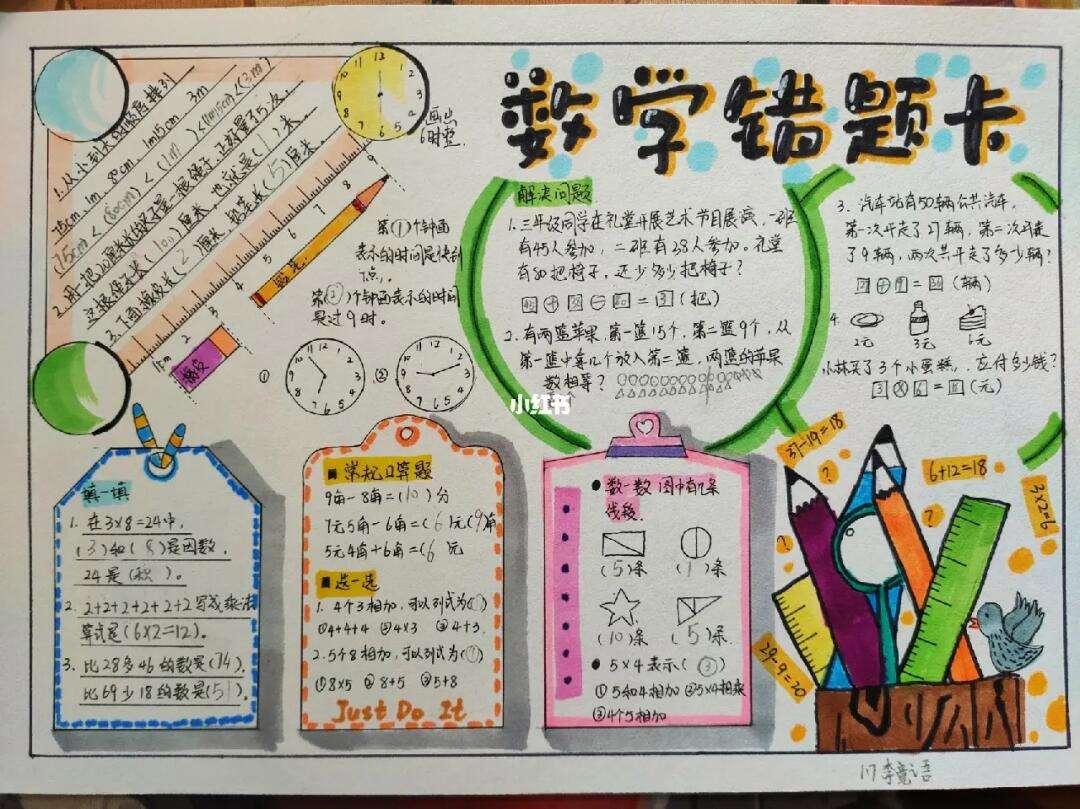 数学错题卡
1.从小到大的顺序排列
75cm、1m、80cm、1m15cm、3m
(75cm)<(80cm)<(1m)<(1m15cm)<(3m)
2.用一把20厘米长的尺子量一根绳子,正好量了5次,
这根绳子长(100)厘米,也就是(1)米.
3.下面橡皮长(2)厘米,铅笔长(5)厘米.
画出
6时整.
橡皮
铅笔
第①个钟面
表示的时间是快到
7点,
第②个钟面表示的时间
是过9时.
①
②
解决问题
1.三年级同学在礼堂开展艺术节目展演,一班
有45人参加,二班有38人参加。礼堂
有80把椅子,还少多少把椅子?
2.有两篮苹果,第一篮15个,第二篮9个,从
第一篮中拿几个放入第二篮,两篮的苹果
数相等?
3.汽车站有50辆公共汽车,
第一次开走了27辆,第二次开走
了9辆,两次共开走了多少辆?
4.
2元 3元 6元
小林买了3个小蛋糕,应付多少钱?
小红书
填一填
1.在3×8=24中,
(3)和(8)是因数,
24是(积)。
2.2+2+2+2+2+2写成乘法
算式是(6×2=12)。
3.比28多46的数是(74),
比69少18的数是(51)。
常规口算题
9角-8角=(10)分
7元5角-6角=(6)元(9)角
5元4角+6角=(6)元
选一选
1.4个3相加,可以列式为(①)
①4+4+4 ②4×3 ③4+3.
2.5个8相加,可以列式为(①)
①8×5 ②8+5 ③5+8
Just Do It
数一数 图中有几条
线段.
(5)条 (1)条
(10)条 (5)条.
5×4表示(③)
①5和4相加 ②5×4相乘
③4个5相加
37-19=18
6+12=18
3×2=6
29-9=20
17李竟语